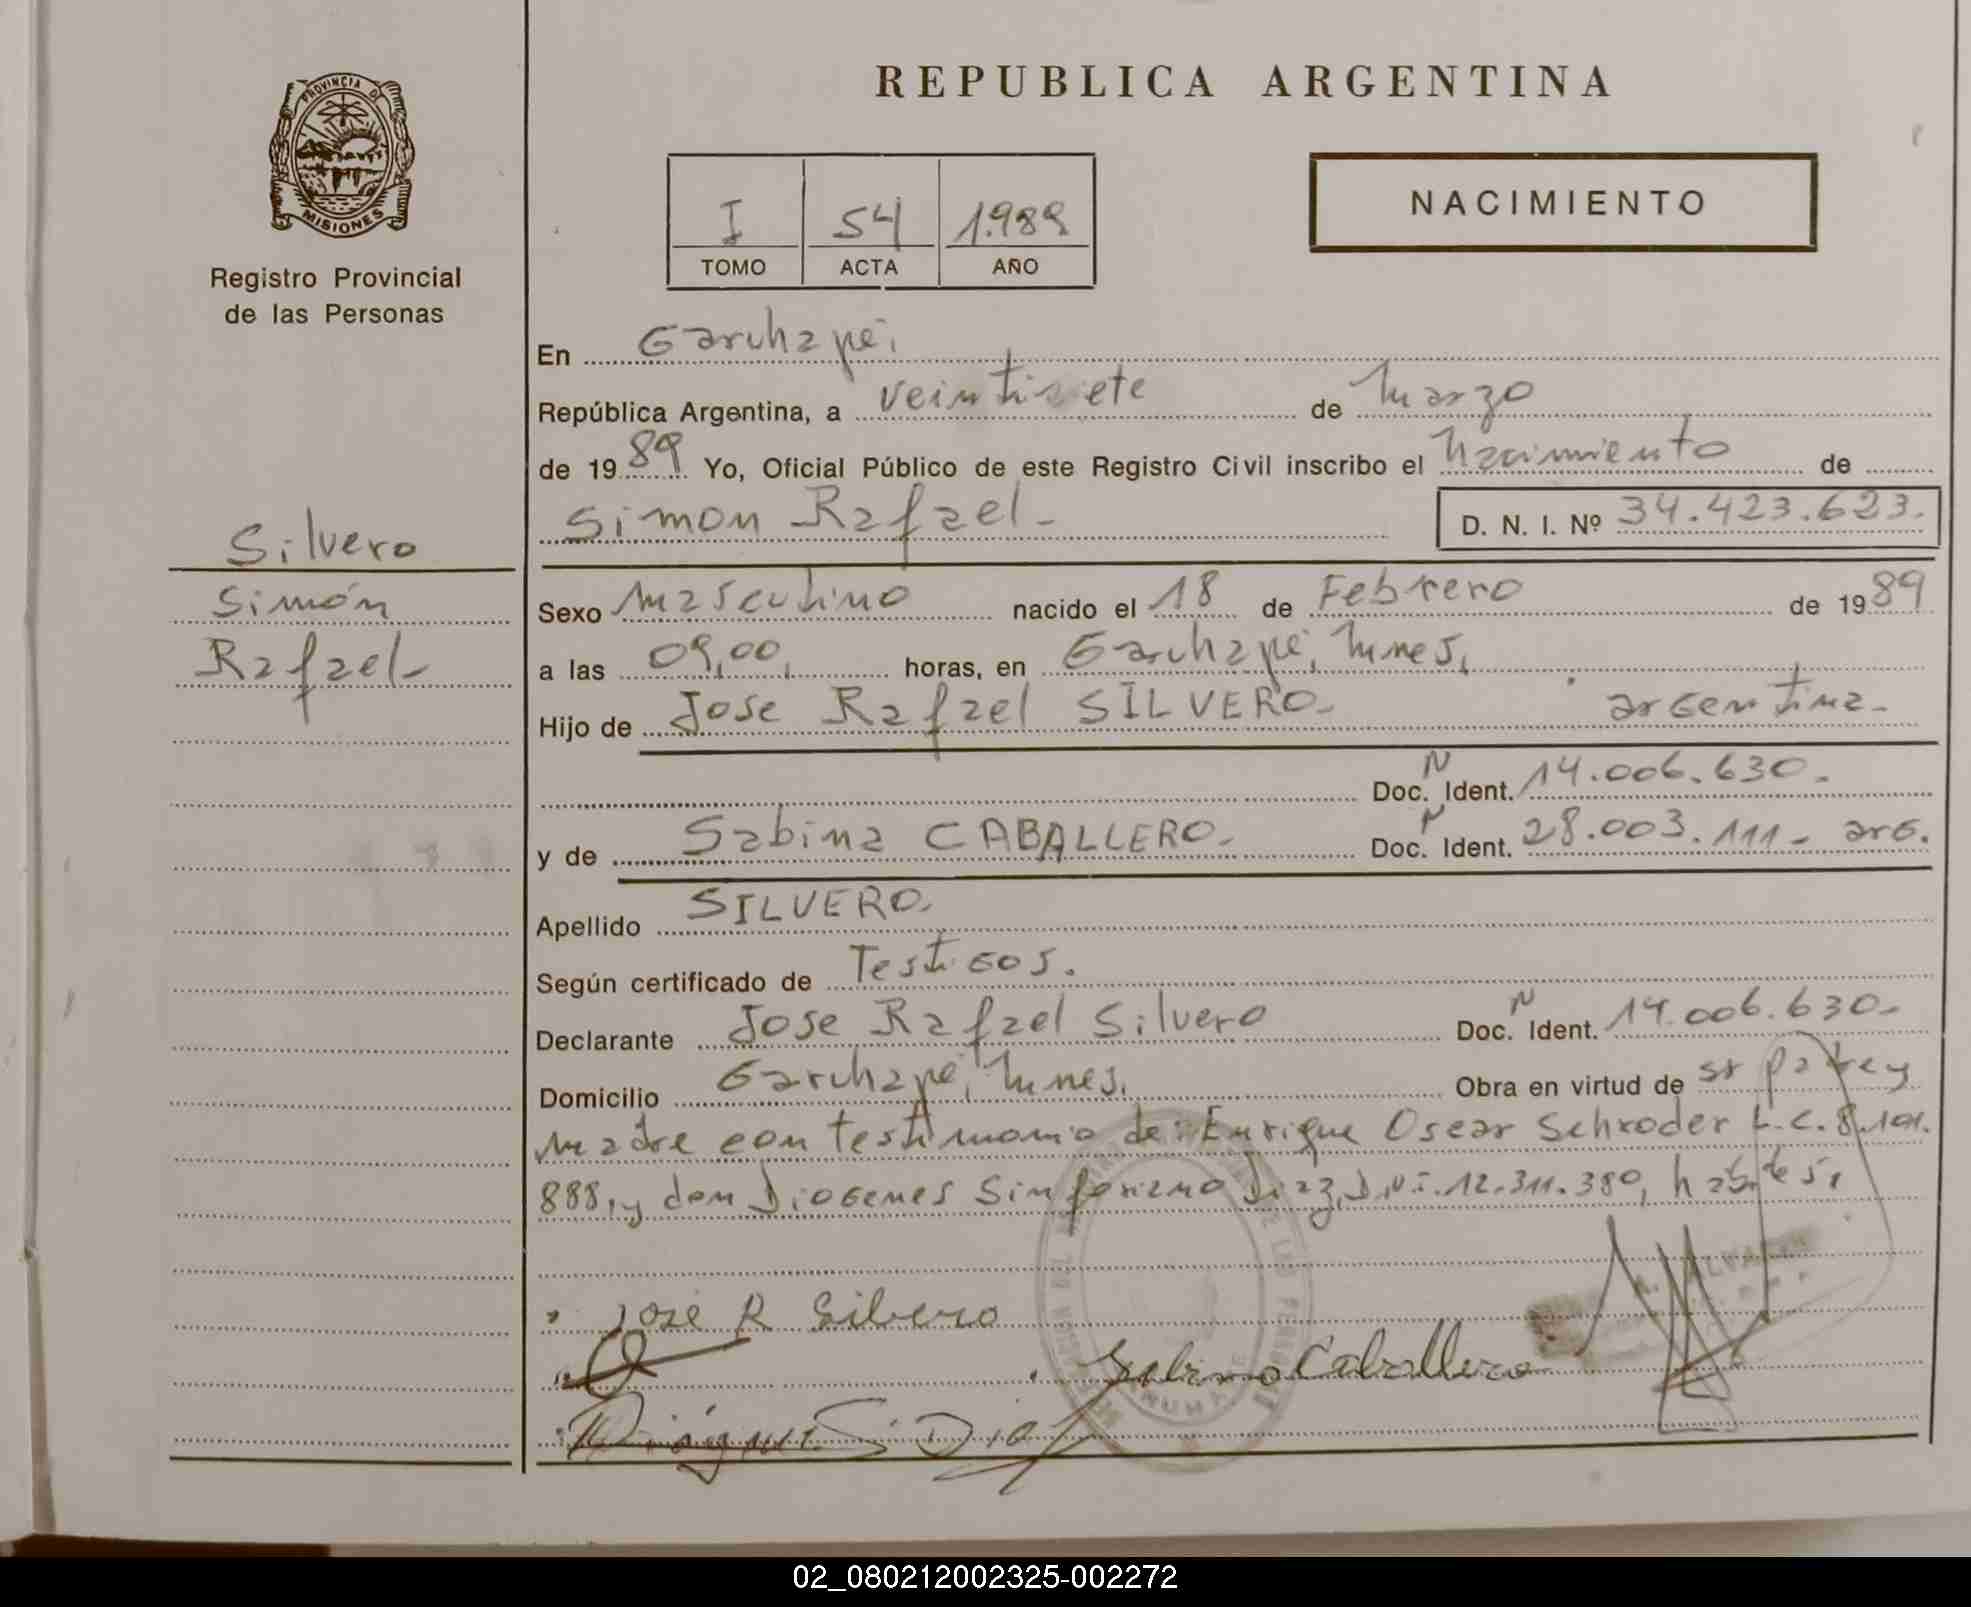 PROVINCIA DE
MISIONES
Registro Provincial
de las Personas
Silvero
Simón
Rafael-
REPUBLICA ARGENTINA
I 54 1.989
TOMO ACTA AÑO
NACIMIENTO
En Garuhapé,
República Argentina, a veintisiete de marzo
de 1989 Yo, Oficial Público de este Registro Civil inscribo el Nacimiento de
Simon Rafael-
D. N. I. Nº 34.423.623.
Sexo masculino nacido el 18 de Febrero de 1989
a las 09,00, horas, en Garuhapé, Mnes,
Hijo de Jose Rafael SILVERO- argentina-
Doc. N Ident. 14.006.630-
y de Sabina CABALLERO- Doc. N Ident. 28.003.111- arg.
Apellido SILVERO-
Según certificado de Testigos.
Declarante Jose Rafael Silvero Doc. N Ident. 14.006.630-
Domicilio Garuhapé, Mnes, Obra en virtud de sr padre y
madre con testimonio de: Enrique Oscar Schroder L.C. 8.101.
888, y don Diogenes Sinforiano Diaz, D.N.I. 12.311.380, habtes,
Jose R Silvero
Sabina Caballero
Diógenes S. Diaz
02_080212002325-002272